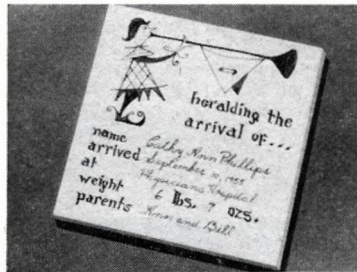 heralding the
arrival of...
name Cathy Ann Phillips
arrived September 10, 1955
at Physicians Hospital
weight 6 lbs. 7 ozs.
parents Ann and Bill